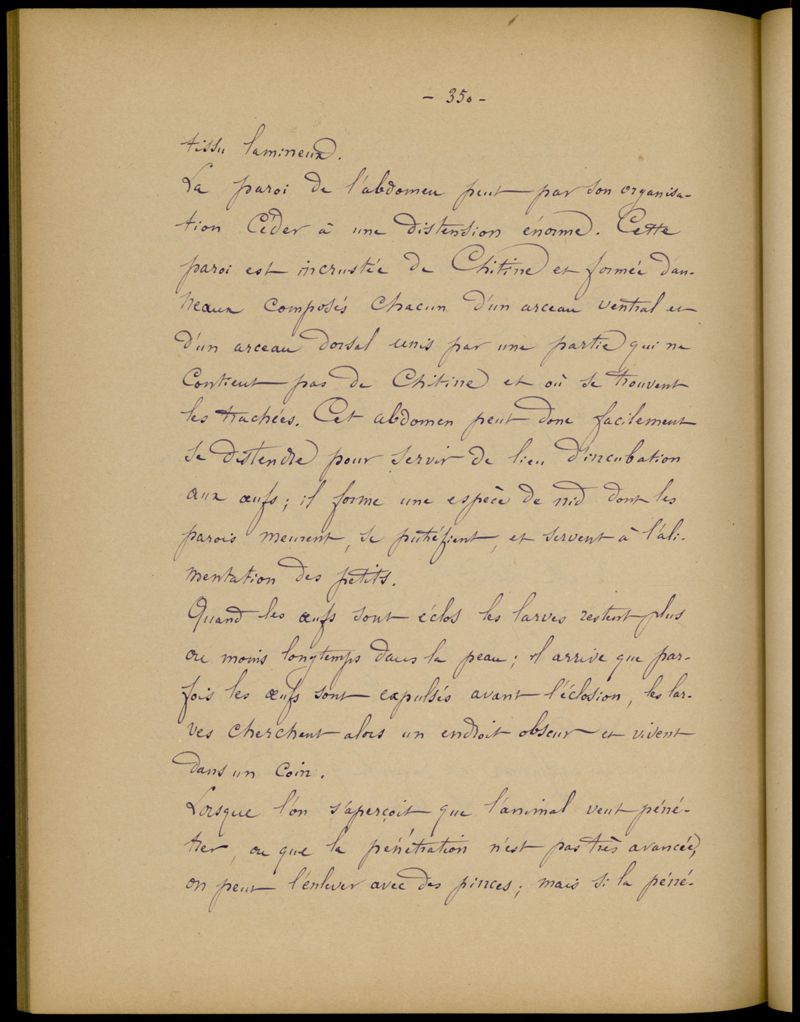 - 350 -
tissu lamineux.
La paroi de l'abdomen peut par son organisa-
tion céder à une distension énorme. Cette
paroi est incrustée de Chitine et formée d'an-
neaux composés chacun d'un arceau ventral et
d'un arceau dorsal unis par une partie qui ne
contient pas de Chitine et où se trouvent
les trachées. Cet abdomen peut donc facilement
se distendre pour servir de lieu d'incubation
aux œufs; il forme une espèce de nid dont les
parois meurent, se putréfient, et servent à l'ali-
mentation des petits.
Quand les œufs sont éclos les larves restent plus
ou moins longtemps dans la peau; il arrive que par-
fois les œufs sont expulsés avant l'éclosion, les lar-
ves cherchent alors un endroit obscur et vivent
dans un coin.
Lorsque l'on s'aperçoit que l'animal veut péné-
trer, ou que la pénétration n'est pas très avancée,
on peut l'enlever avec des pinces; mais si la péné-